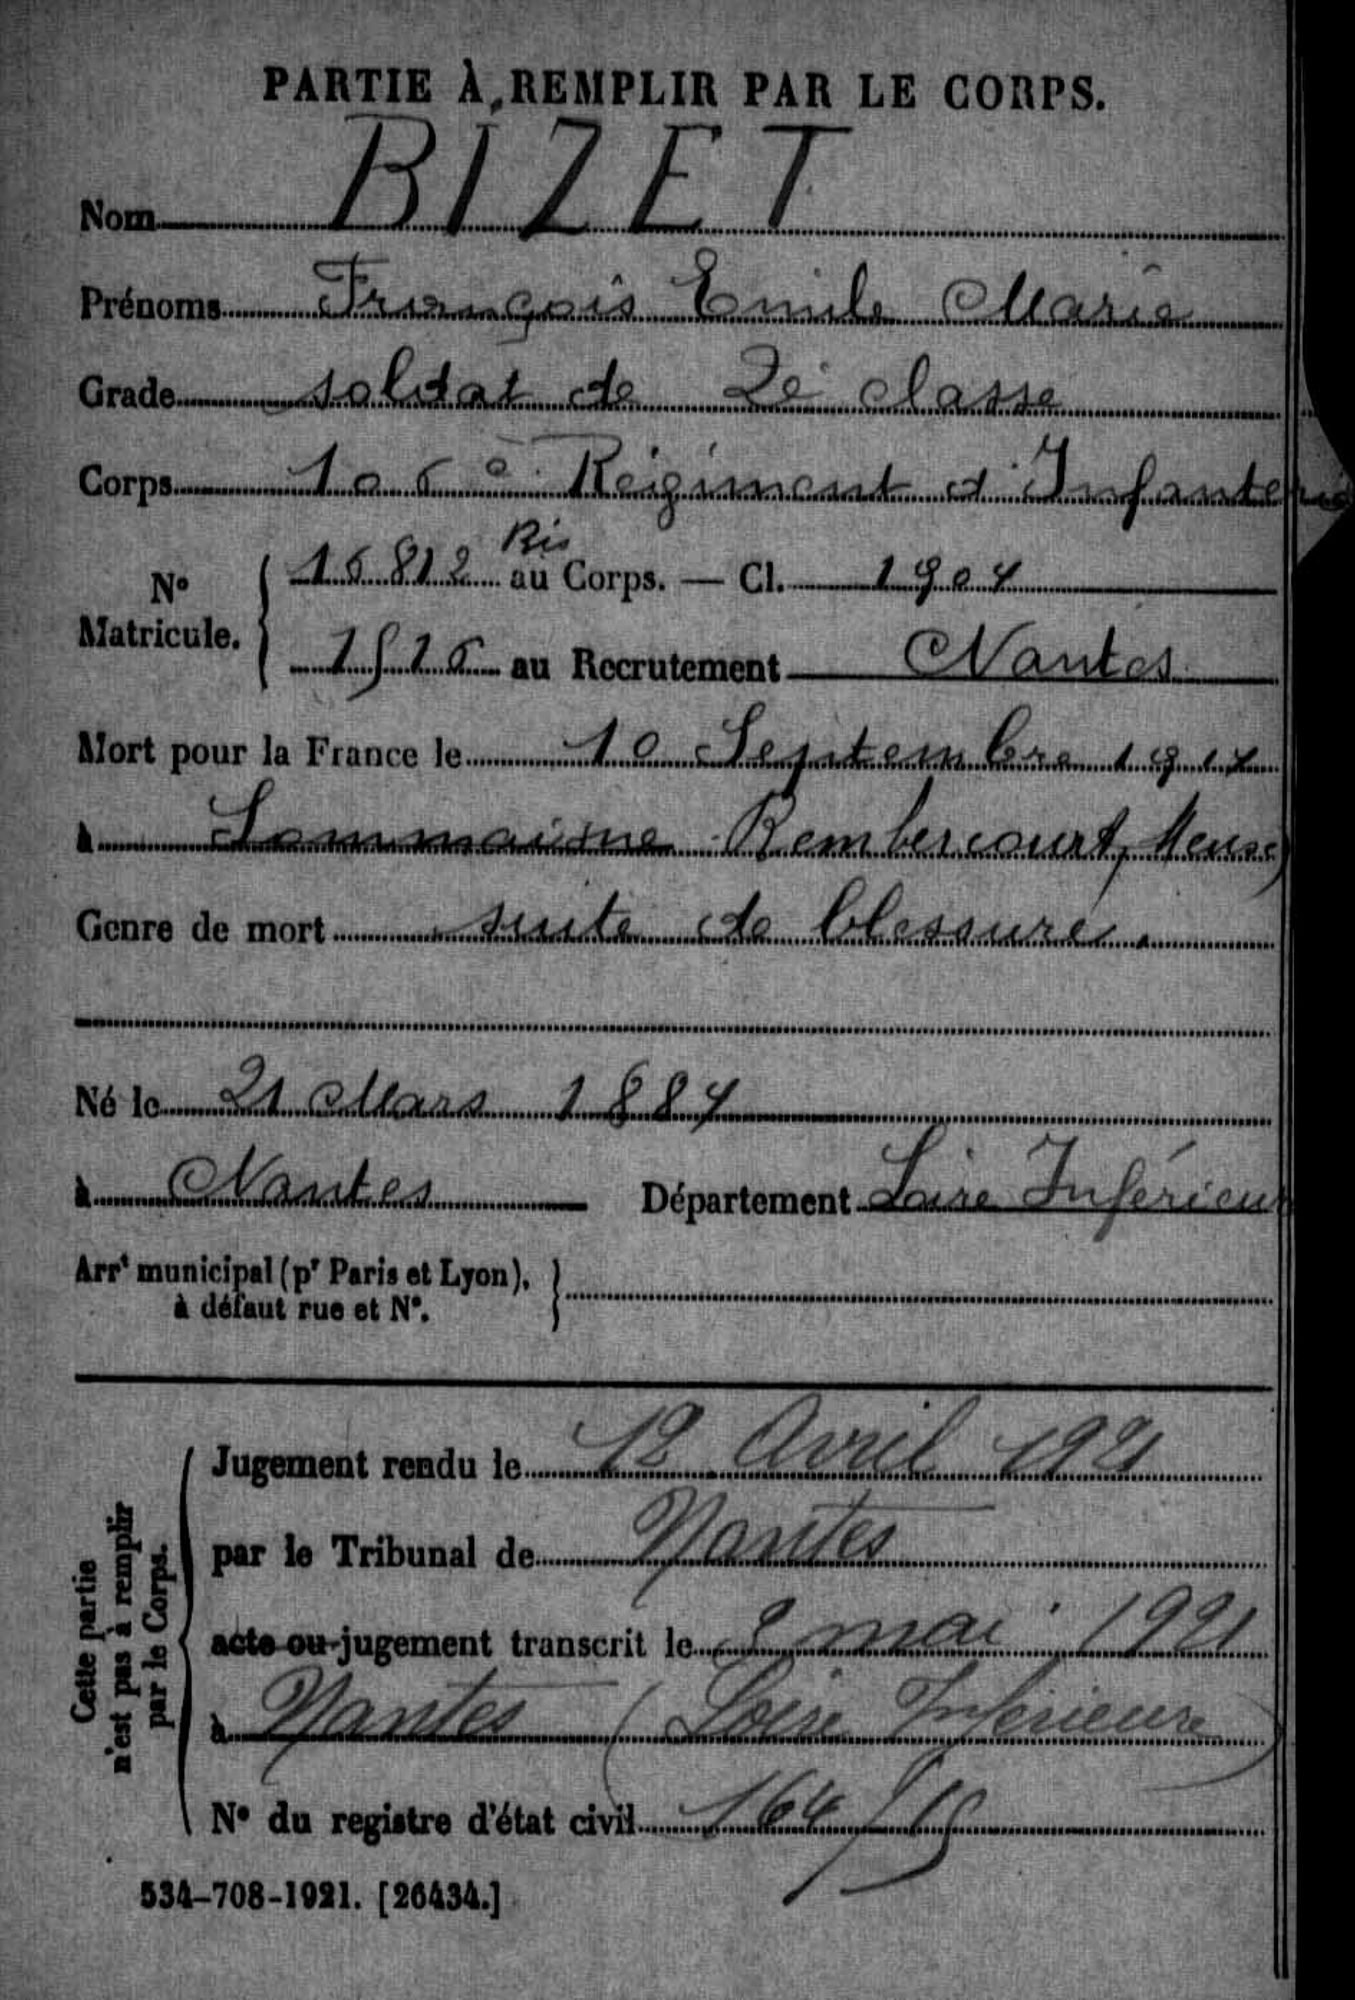 PARTIE À REMPLIR PAR LE CORPS.
Nom BIZET
Prénoms François Emile Marie
Grade soldat de 2e classe
Corps 106e Régiment d'Infanterie
Nº Matricule. 16812 Bis au Corps. — Cl. 1904
1516 au Recrutement Nantes
Mort pour la France le 10 Septembre 1914
à Sommaisne Rembercourt, Meuse)
Genre de mort suite de blessures.
Né le 21 Mars 1884
à Nantes Département Loire Inférieur
Arrt municipal (pr Paris et Lyon),
à défaut rue et Nº.
Cette partie
n'est pas à remplir
par le Corps.
Jugement rendu le 12 Avril 1921
par le Tribunal de Nantes
acte ou jugement transcrit le mai 1921
à Nantes (Loire Inférieure)
Nº du registre d'état civil 164/15
534-708-1921. [26434.]